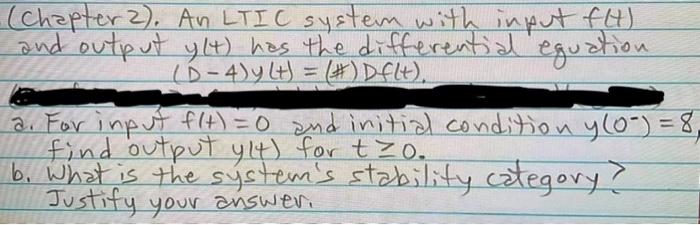 (Chapter 2). An LTIC system with input f(t)
and output y(t) has the differential equation
(D-4)y(t) = (#)Df(t).
a. For input f(t)=0 and initial condition y(0⁻)=8,
find output y(t) for t≥0.
b. What is the system's stability category?
Justify your answer.